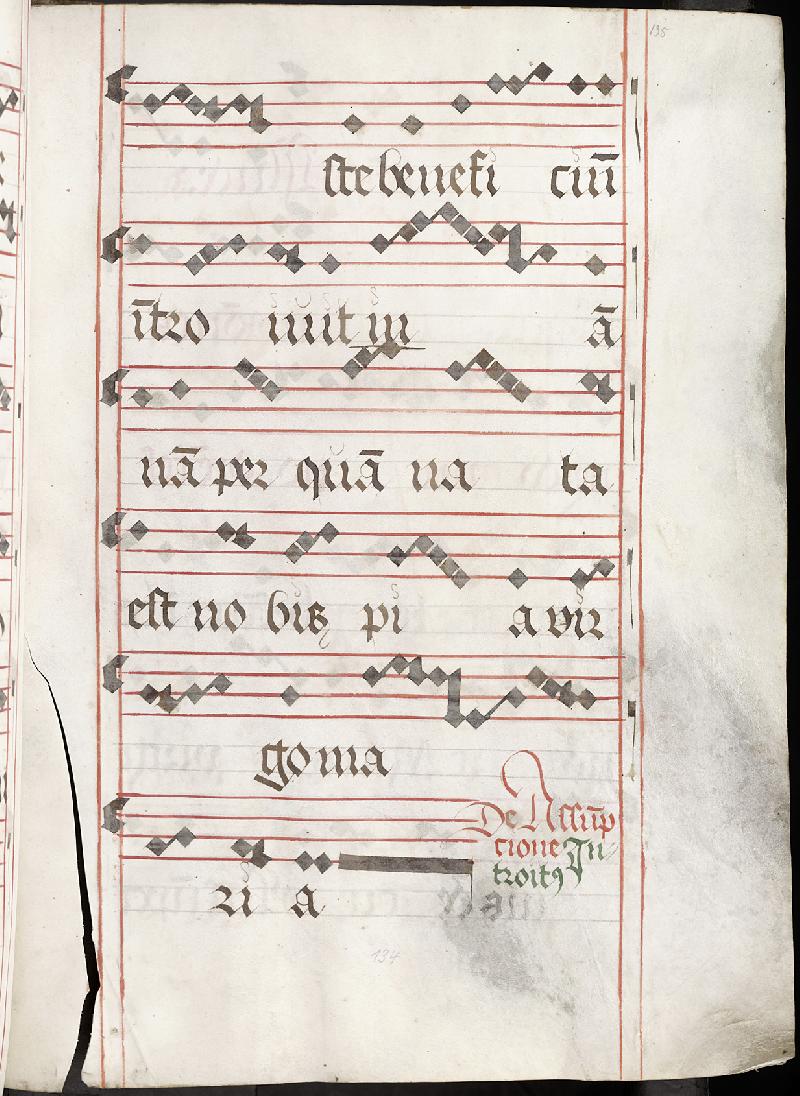 135
ste benefi ciū
ītro iuit in ā
nā per quā na ta
est no bis pi a vir
go ma
De Assūp
cione In
troitꝯ
ri a
134